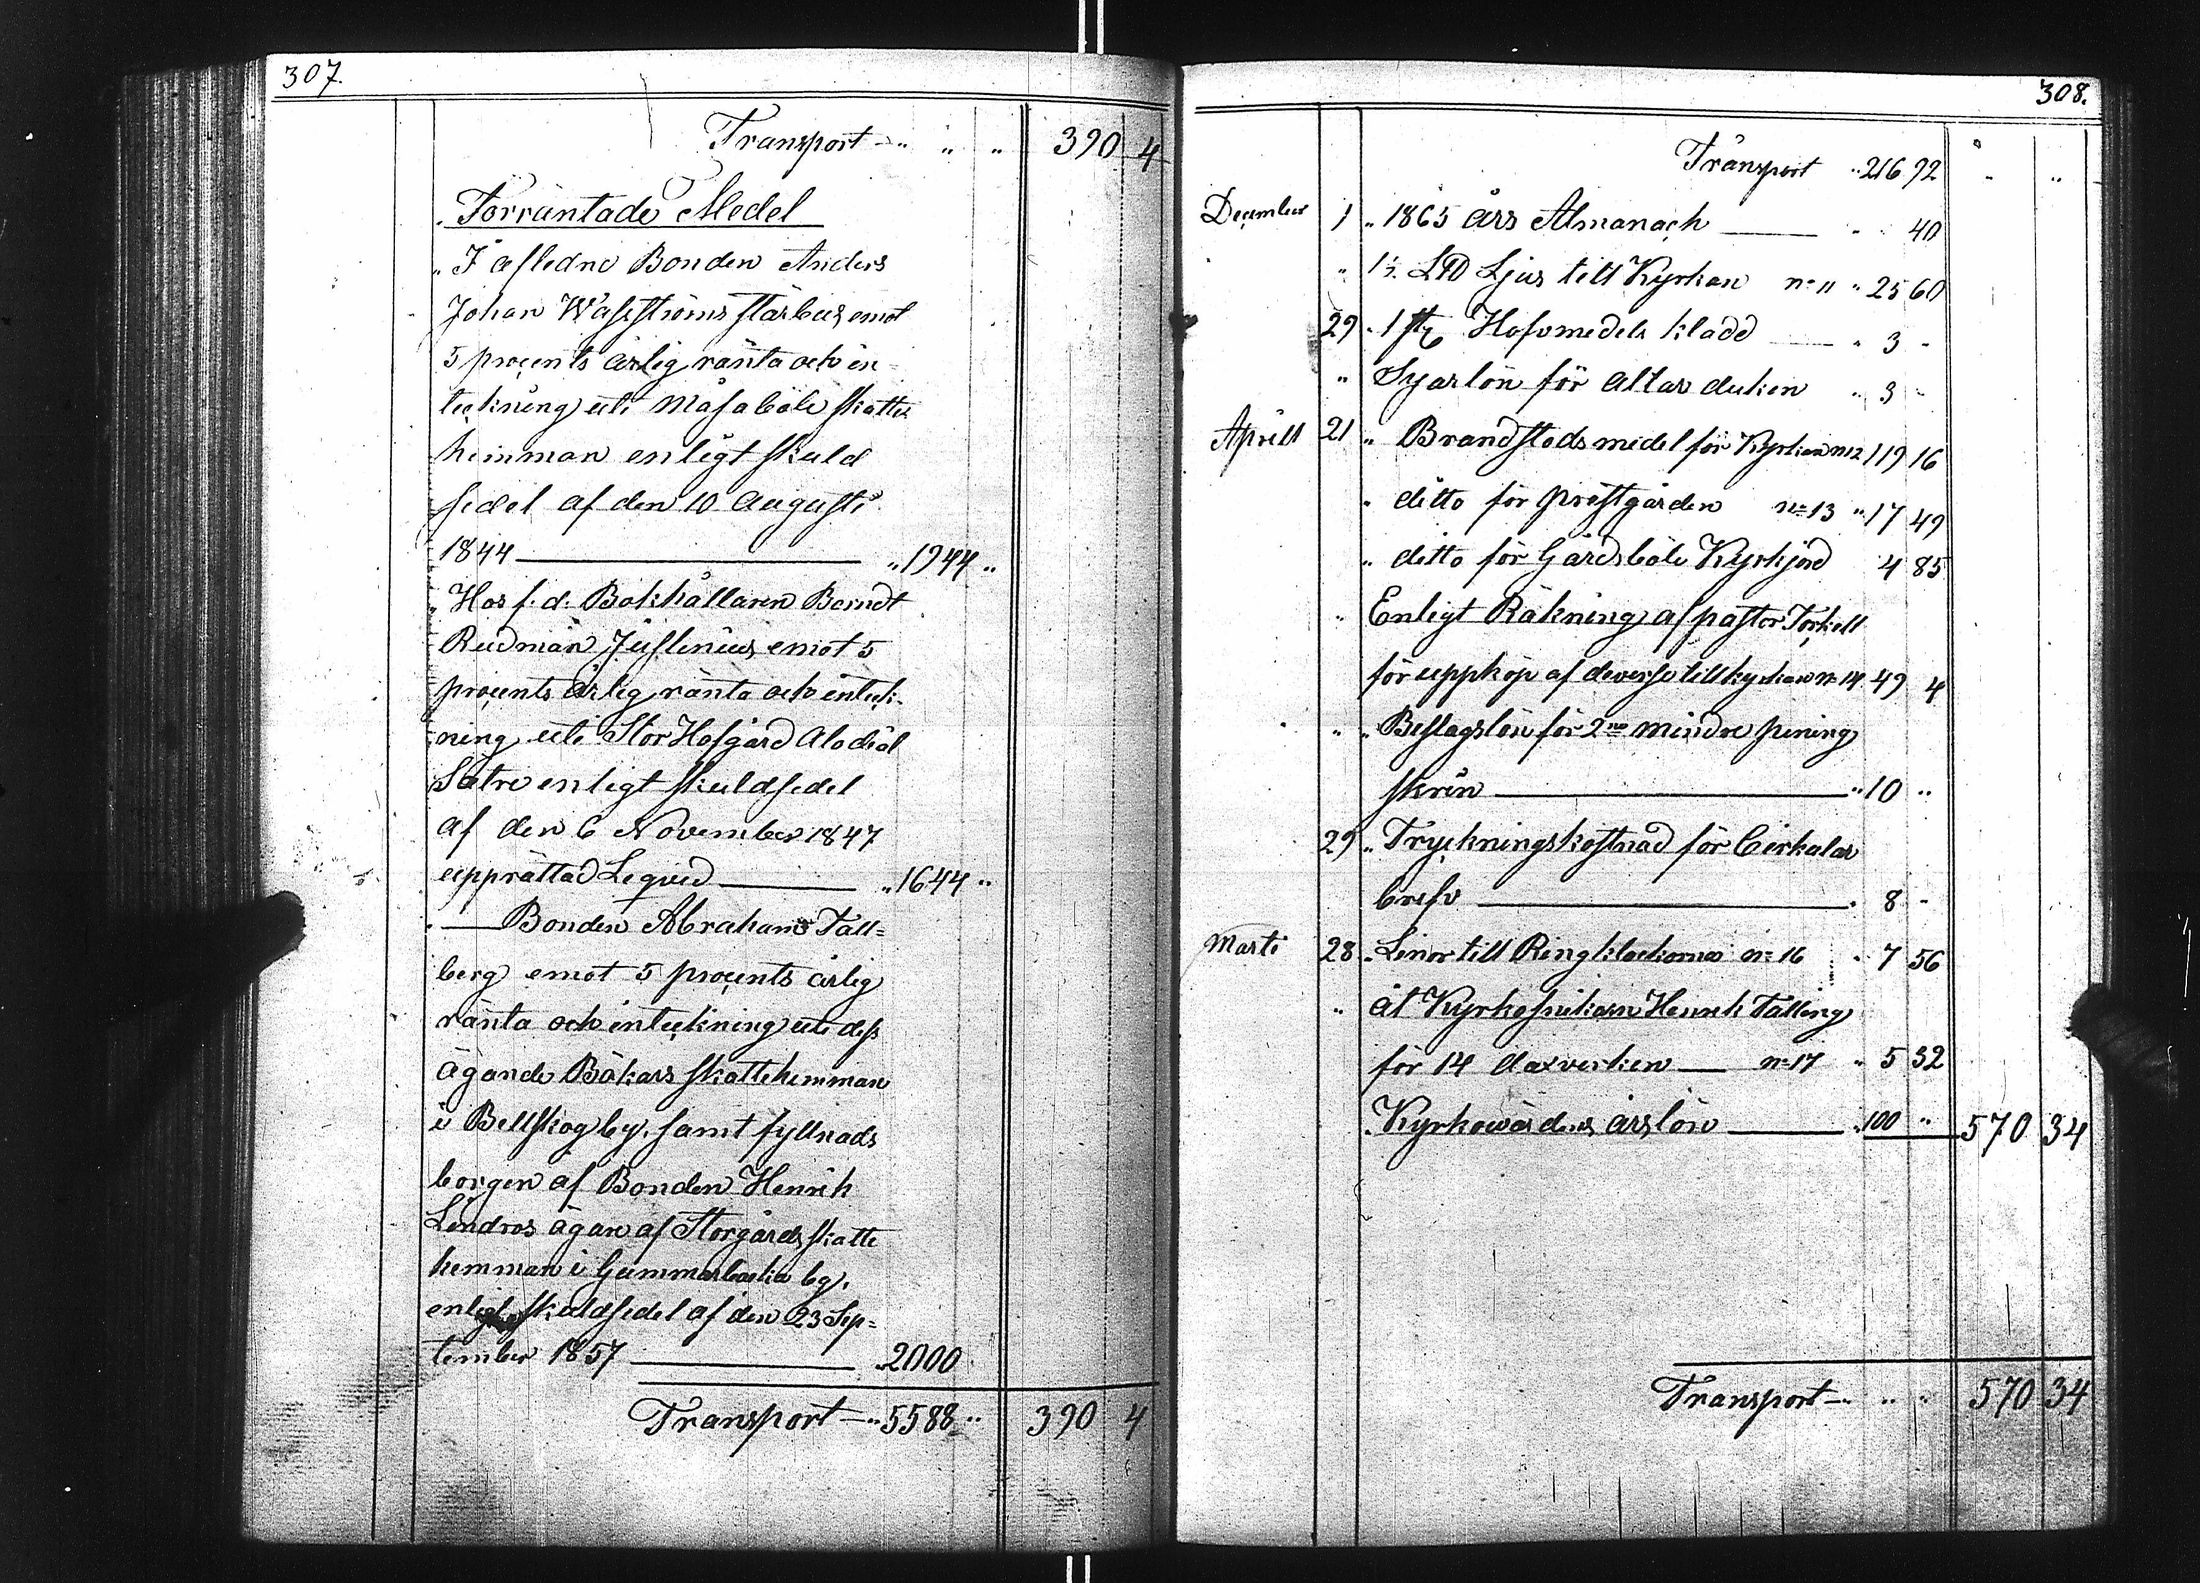 307.
Transport — „ „ „ 390 4
Förräntade Medel
„ I afledne Bonden Anders
Johan Wasströms stärbus emot
5 procents årlig ränta och in-
teckning uti Måsaböle skatte
hemman enligt skuld
sedel af den 10 Augusti
1844 — „ 1944 „
„ Hos f. d. Bokhållaren Berndt
Rudman Juslenius emot 5
procents årlig ränta och inteck-
ning uti Stor Hofgård Alodial
Sätre enligt skuldsedel
af den 6 November 1847
upprättad Liqvid — „ 1644 „
„ — Bonden Abraham Tall=
berg emot 5 procents årlig
ränta och inteckning uti dess
ägande Bökars skattehemman
i Bellskog by, samt fyllnads
borgen af Bonden Henrik
Lindros ägare af Storgårds skatte
hemman i Gammelbacka by,
enligt skuldsedel af den 23 Sep=
tember 1857 — „ 2000
Transport — „ 5588 „ 390 4
308.
Transport „ 216 92 „ „
December 1 „ 1865 års Almanach — „ 40
„ 1½ LTD Ljus till Kyrkan n:o 11 „ 25 60
29 „ 1 st Hofvmedels kladd — „ 3 -
„ Syarlön för altar duken „ 3 -
Aprill 21 „ Brandstods medel för Kyrkan n:o 12 119 16
„ ditto för prestgården n:o 13 „ 17 49
„ ditto för Gårdsböle Kyrkjord 4 85
„ Enligt Räkning af pastor Torkell
för uppköp af diverse till kyrkan n:o 14 49 4
„ „ Beslagslön för 2ne mindre pening
skrin — „ 10 „
29 „ Tryckningskostnad för Cirkular
bref — „ 8 -
Marti 28 „ Linor till Ringklockorna n:o 16 „ 7 56
„ åt Kyrkosnikarn Henrik Talling
för 14 dagsverken — n:o 17 „ 5 32
„ Kyrkowärdens årslön — „ 100 „ 570 34
Transport — „ „ „ 570 34